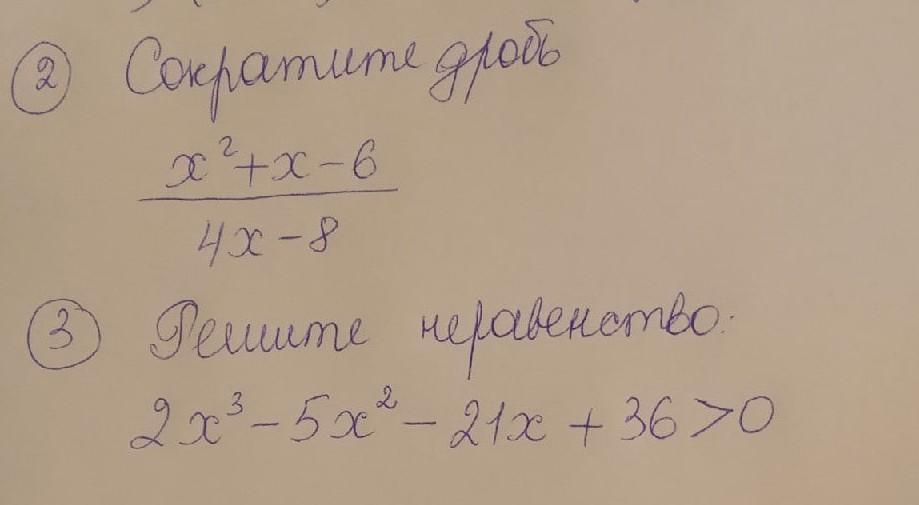 ② Сократите дробь
x²+x-6
4x-8
③ Решите неравенство:
2x³-5x²-21x+36>0